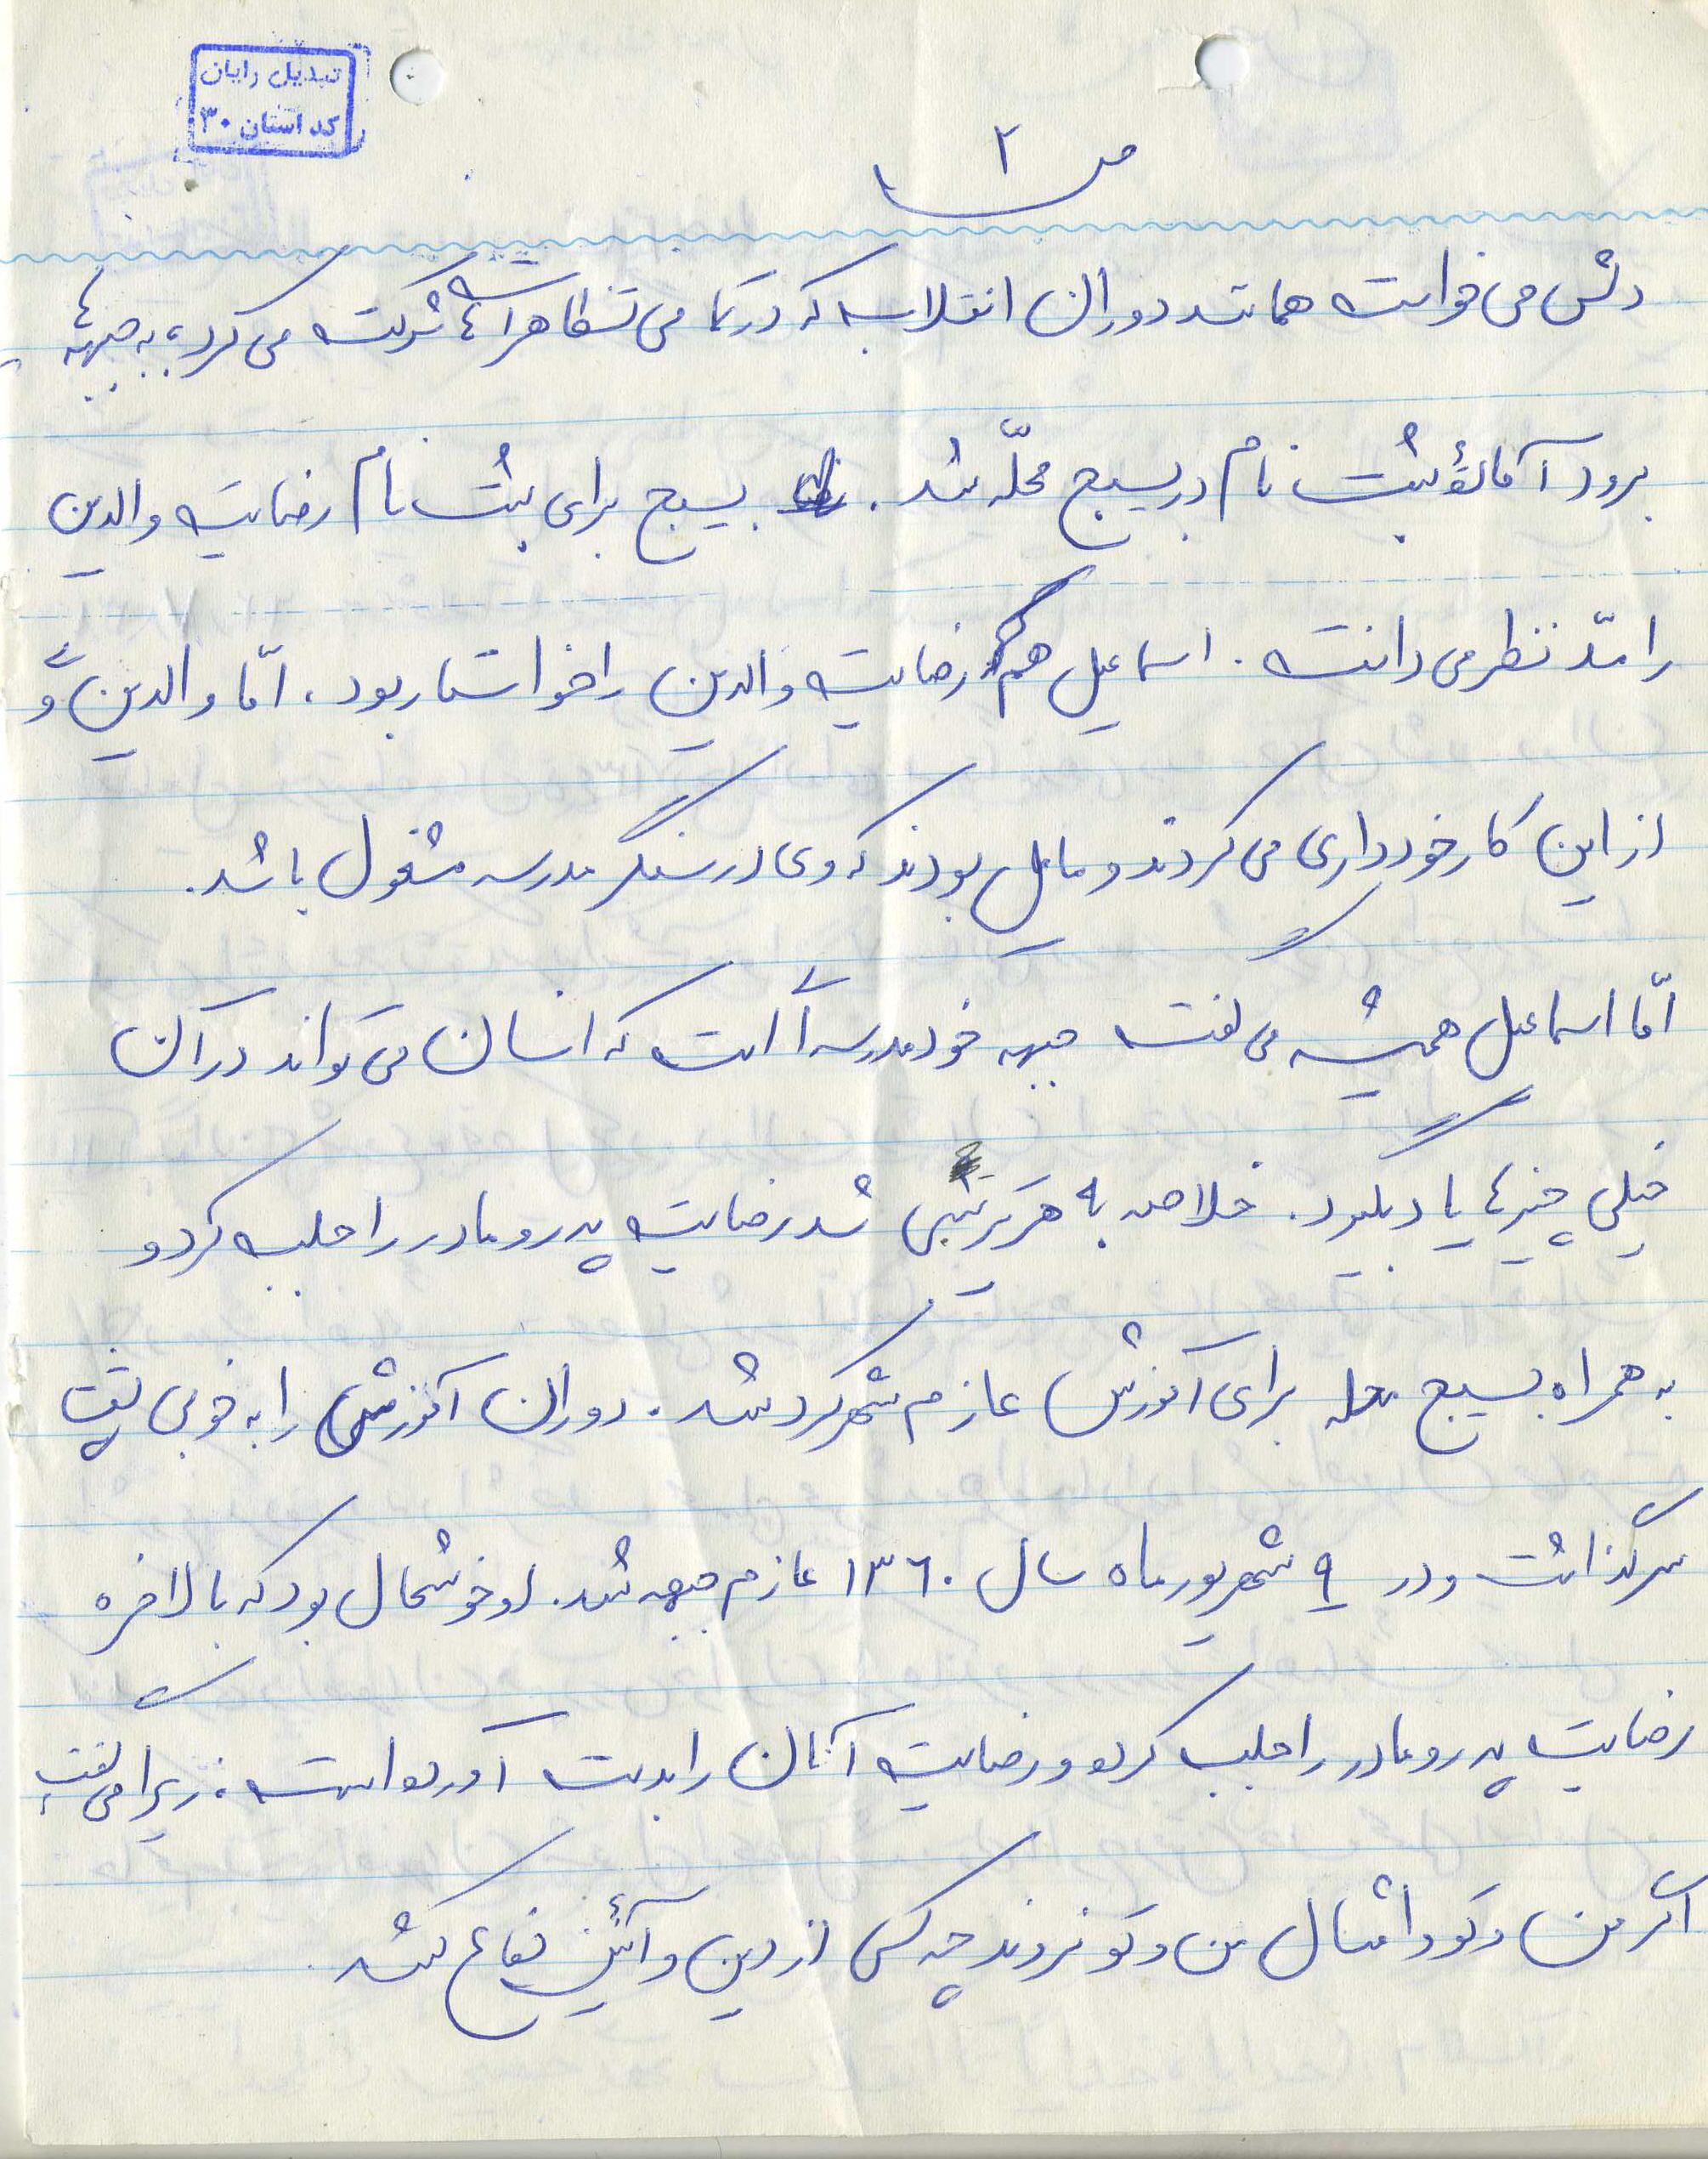 تبدیل رایان
کد استان ۳۰
ص ۲
دلش می خواست همانند دوران انقلاب که در تمامی تظاهرات ها شرکت می کرد، به جبهه ها
برود آماده ثبت نام در بسیج محلّه شد. بسیج برای ثبت نام رضایت والدین
را مدّ نظر می دانست. اسماعیل هم رضایت والدین را خواستار بود. امّا والدین وی
از این کار خودداری می کردند و مایل بودند که وی در سنگر مدرسه مشغول باشد.
امّا اسماعیل همیشه می گفت جبهه خود مدرسه ای است که انسان می تواند در آن
خیلی چیزها یاد بگیرد. خلاصه به هر ترتیبی شد رضایت پدر و مادر را جلب کرد و
به همراه بسیج محله برای آموزش عازم شهرکرد شد. دوران آموزشی را به خوبی پشت
سر گذاشت و در ۹ شهریور ماه سال ۱۳۶۰ عازم جبهه شد. او خوشحال بود که بالاخره
رضایت پدر و مادر را جلب کرده و رضایت آنان را بدست آورده است، زیرا می گفت
اگر من و تو و امثال من و تو نروند چه کسی از دین و آئین دفاع کند.